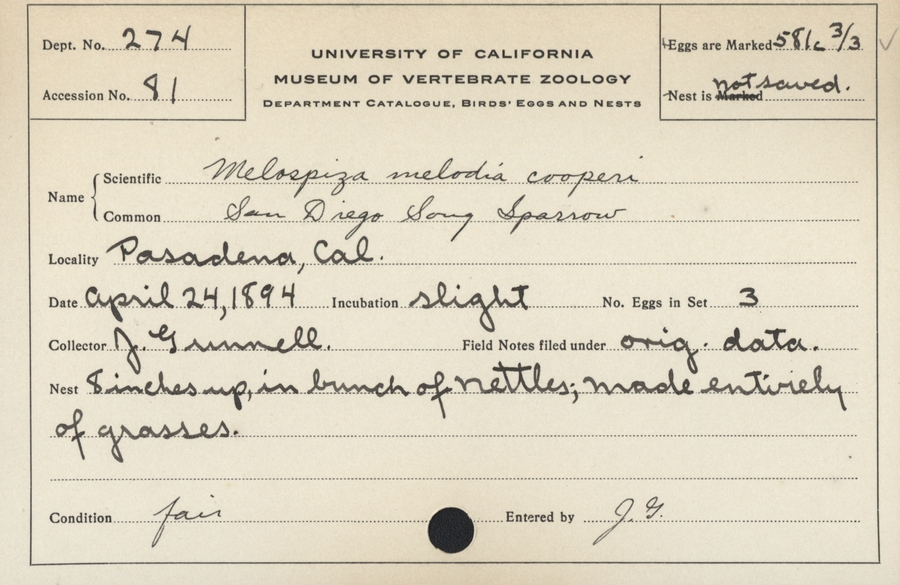 Dept. No. 274
Accession No. 81
UNIVERSITY OF CALIFORNIA
MUSEUM OF VERTEBRATE ZOOLOGY
DEPARTMENT CATALOGUE, BIRDS' EGGS AND NESTS
Eggs are Marked 581c 3/3 ✓
Nest is Marked not saved.
Name
Scientific Melospiza melodia cooperi
Common San Diego Song Sparrow
Locality Pasadena, Cal.
Date April 24, 1894 Incubation slight No. Eggs in Set 3
Collector J. Grinnell. Field Notes filed under orig. data.
Nest 8 inches up, in bunch of nettles; made entirely
of grasses.
Condition fair Entered by J. G.